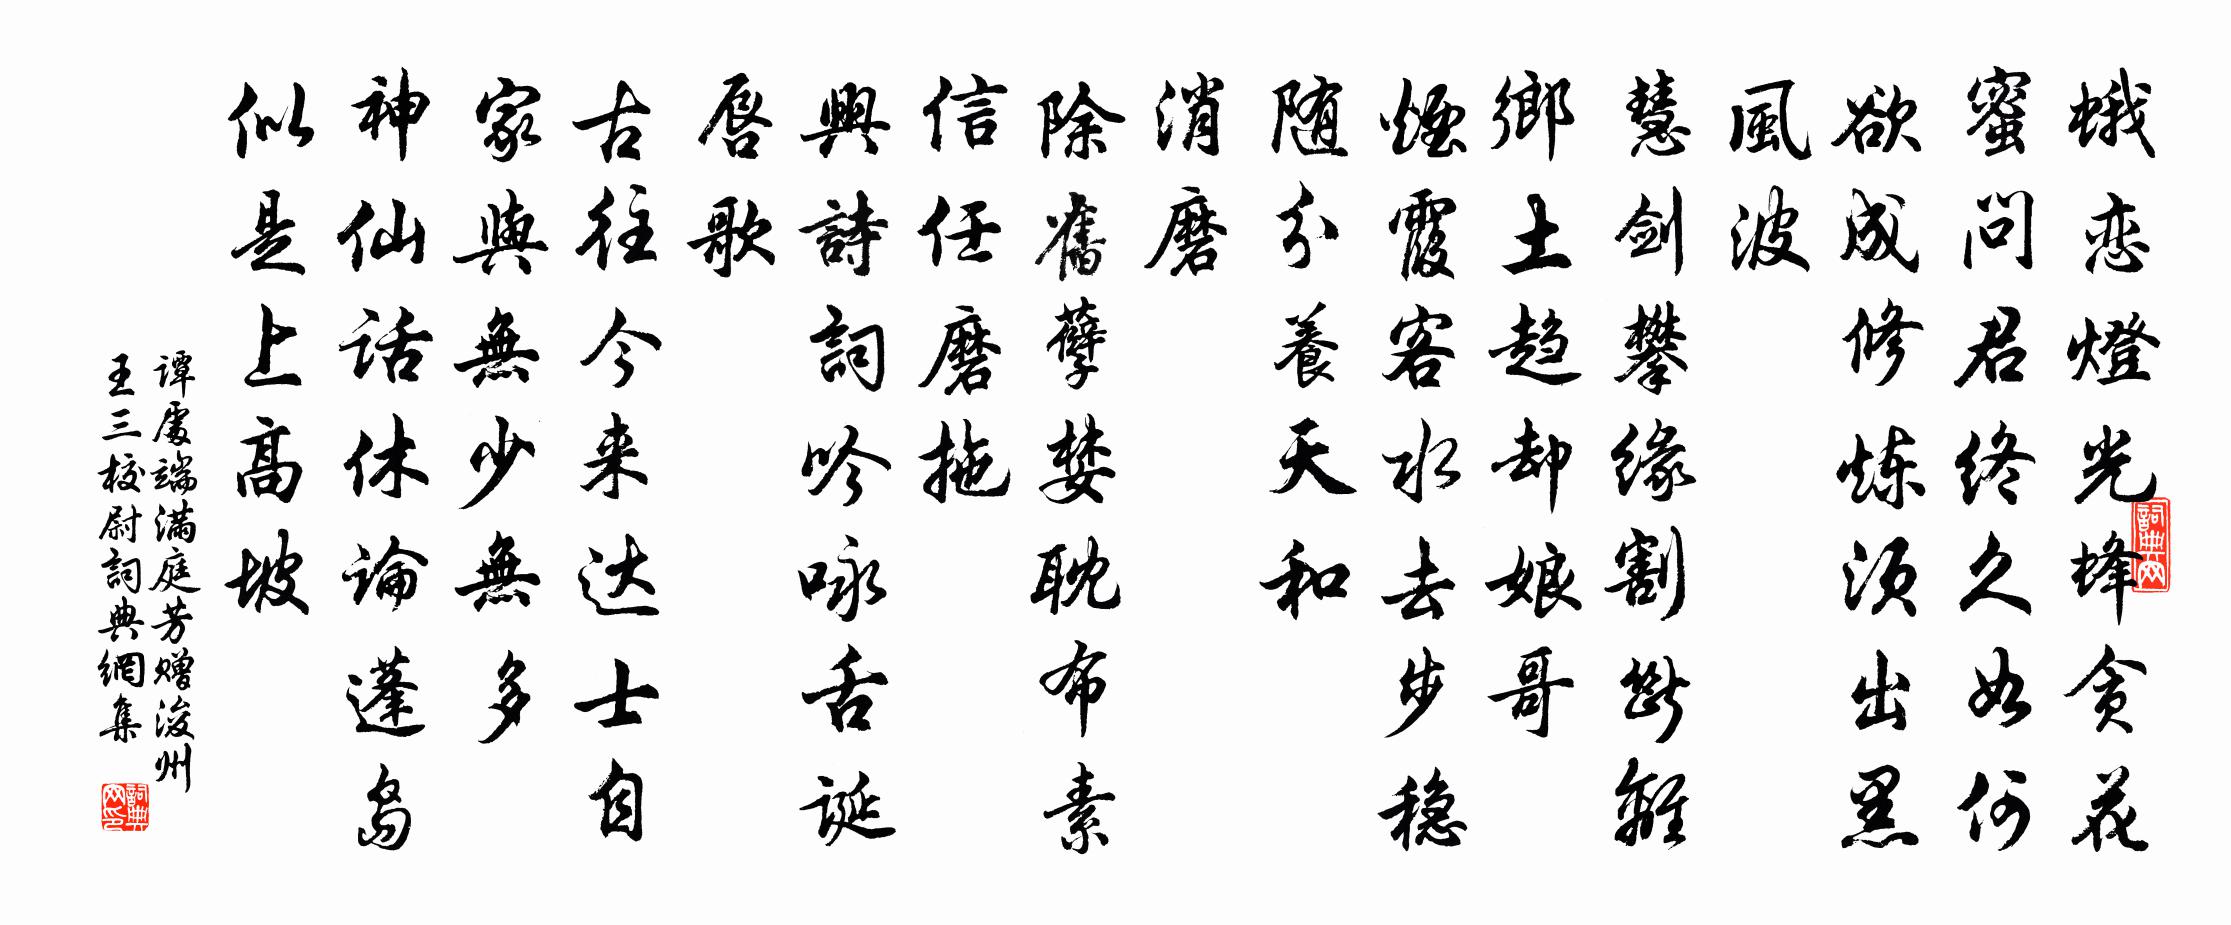 蛾恋燈光蜂贪花
蜜問君终久如何
欲成修炼须出黑
風波
慧剑攀缘割斷離
鄉土趋却娘哥
煙霞客水云步稳
随分養天和
消磨
除舊孽婪耽布素
信任磨拖
興詩詞吟咏舌诞
唇歌
古往今来达士自
家與無少無多
神仙话休論蓬岛
似是上高坡
谭處端满庭芳赠浚州
王三校尉詞典網集
詞典网
詞典网印